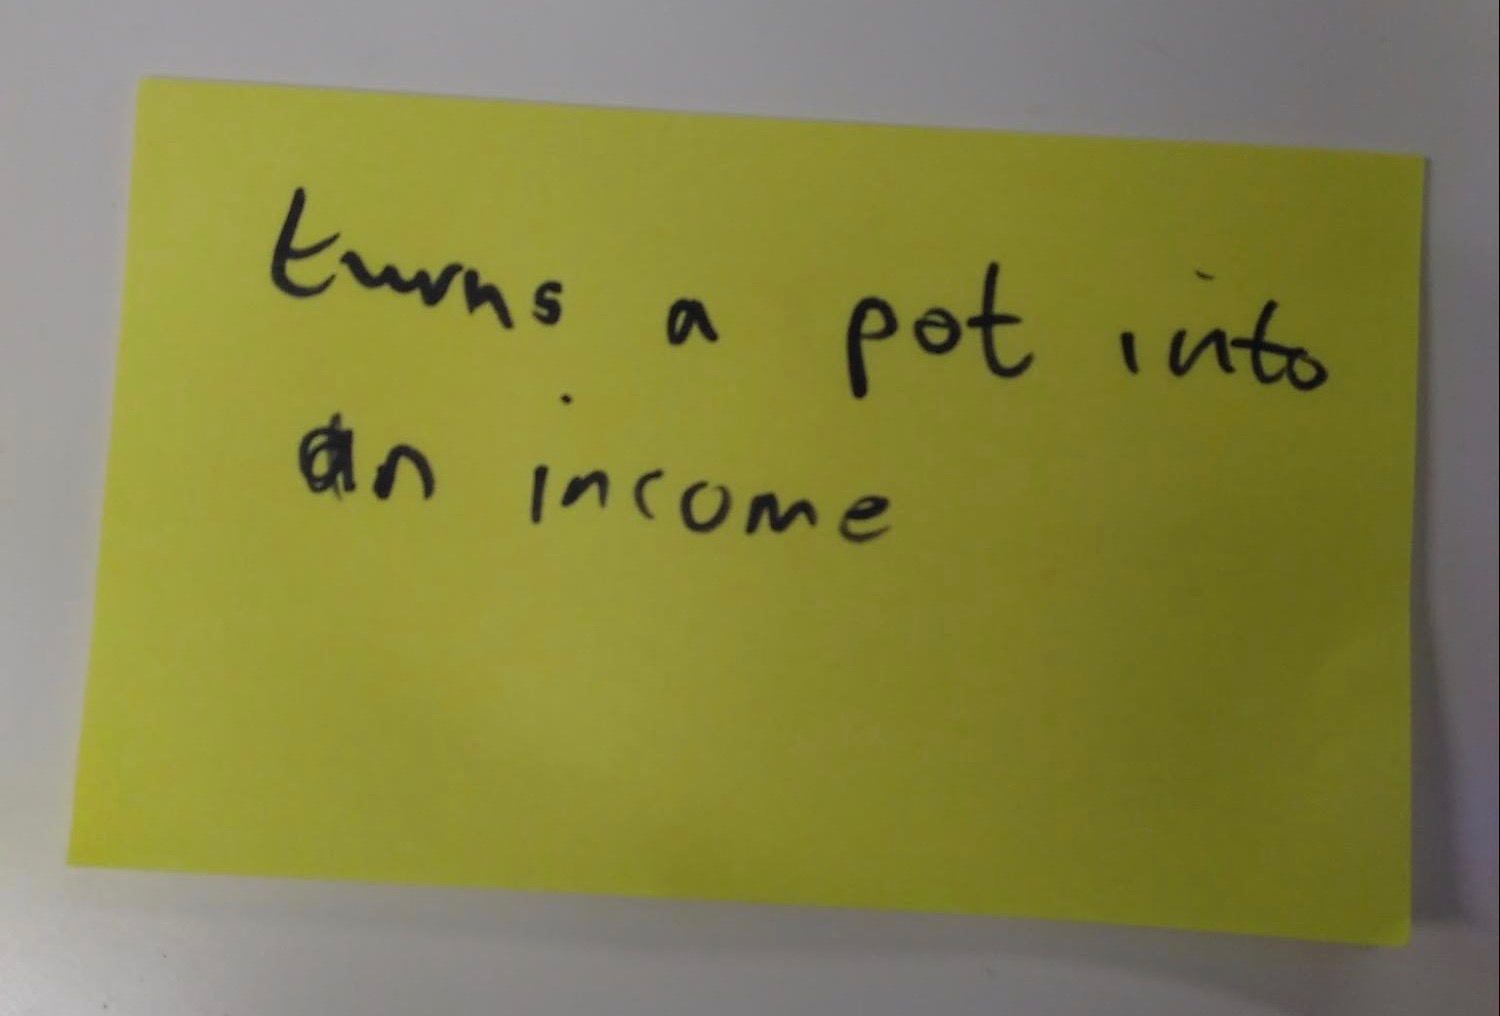 turns a pot into
an income